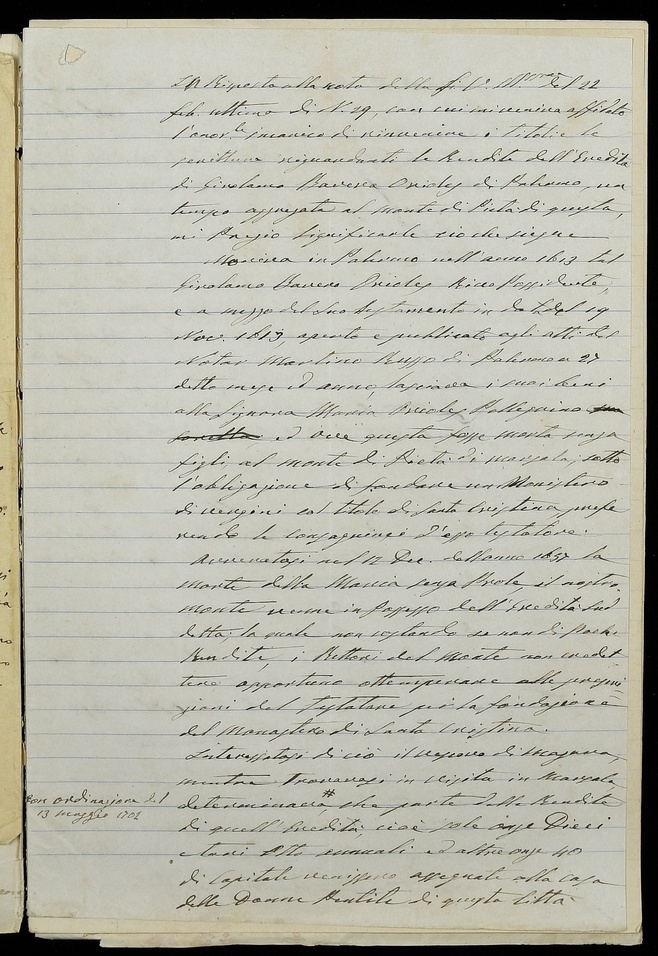 In Risposta alla nota della S. V. Ill.ma del 22
feb. ultimo di N. 29, con cui mi veniva affidato
l'onor.le incarico di rinvenire i titoli e le
scritture riguardanti le Rendite dell'Eredità
di Girolamo Bavera Orioles di Palermo, un
tempo aggregata al monte di Pietà di questa,
mi Pregio significarle ciò che siegue
Moriva in Palermo nell'anno 1613 tal
Girolamo Bavera Orioles Ricco Possidente,
e a mezzo del suo testamento in data del 19
Nov. 1613, aperto e publicato agli atti del
Notar Martino Russo di Palermo a 27
detto mese ed anno, lasciava i suoi beni
alla Signora Maria Orioles Pellegrino sua
sorella ed ove questa fosse morta senza
figli, al monte di Pietà di marsala, sotto
l'obligazione di fondare un Monistero
di vergini sol titolo di Santa Cristina, prefe
rendo le consanguinee d'esso testatore.
Avveratasi nel 12 Dec. dell'anno 1637 la
morte della Maria senza Prole, il nostro
monte venne in Possesso dell'Eredità Sud
detta; la quale non costando se non di poche
Rendite, i Rettori del Monte non credet
tero opportuno ottemperare alle prescri
zioni del testatore per la fondazione
del Monastero di Santa Cristina.
Interessatosi di ciò il vescovo di Mazara,
mentre trovavasi in visita in Marsala
determinava #, che parte delle Rendite
con ordinazione del
13 maggio 1702
di quell'Eredità, cioè sole onze Dieci
e tarì Otto annuali ed altre onze 40
di Capitale venissero assegnate alla casa
delle Donne Pentite di questa Città